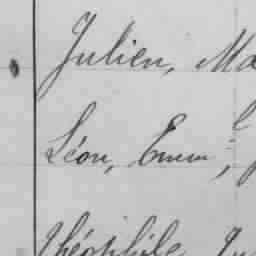 Julien, Ma
Léon, Emm,
théophile